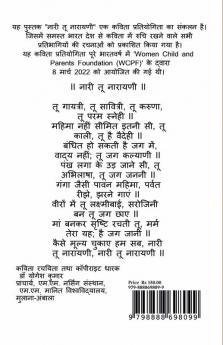 यह पुस्तक "नारी तू नारायणी" एक कविता प्रतियोगिता का संकलन है।
जिसमे समस्त भारत देश से कविता में रुचि रखने वाले सभी
प्रतिभागियों की रचनाओं को प्रकाशित किया गया है।
यह कविता प्रतियोगिता पूरे भारतवर्ष में 'Women Child and
Parents Foundation (WCPF)' के द्वारा
8 मार्च 2022 को आयोजित की गई थी।
॥ नारी तू नारायणी ॥
तू गायत्री, तू सावित्री, तू करुणा,
तू परम स्नेही ॥
महिमा नहीं सीमित इतनी सी, तू
काली, तू है वैदेही ॥
बंधित हो सकती है जग में,
वाद्य नहीं; तू जग कल्याणी ॥
पंख लगा के उड़ जाने सी, तू
अभिलाषा, तू जग जननी ॥
गंगा जैसी पावन महिमा, पर्वत
रीझे, झरने गाएं ॥
वीरों में तू लक्ष्मीबाई, सरोजिनी
बन तू जग छाए ॥
मां बनकर सृष्टि रचती तू, गर्म
तेरा यह; है जग जानी ॥
कैसे मूल्य चुकाए हम सब, नारी
तू नारायणी, नारी तू नारायणी ॥
कविता रचयिता तथा कॉपीराइट धारक
डॉ योगेश कुमार
प्राचार्य, एम.एम. नर्सिंग संस्थान,
एम.एम. मानित विश्वविद्यालय,
मुलाना-अंबाला
Price Rs 350.00
979-888869809-9
9 798888 698099